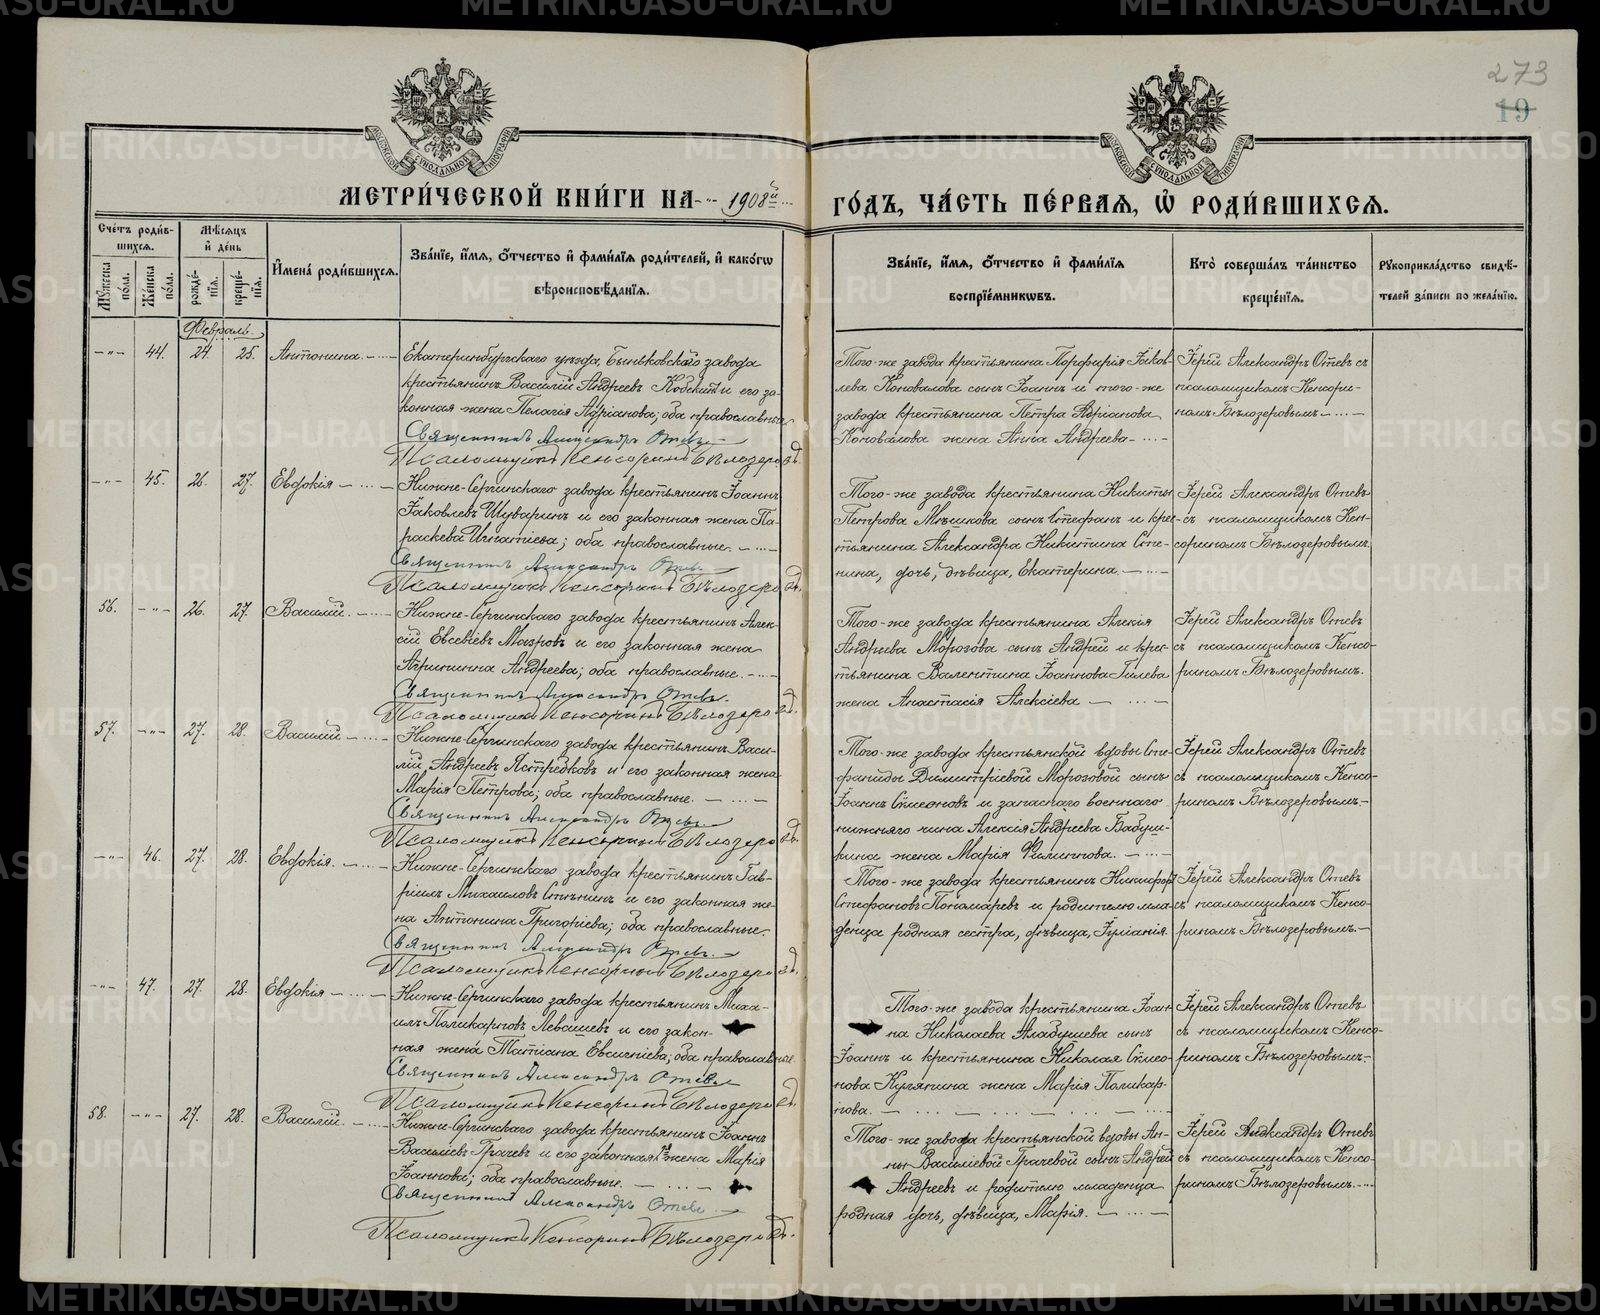 273
19
МОСКОВСКОЙ СѴНОДАЛЬНОЙ ТИПОГРАФІИ
МОСКОВСКОЙ СѴНОДАЛЬНОЙ ТИПОГРАФІИ
МЕТРИ́ЧЕСКОЙ КНИ́ГИ НА 1908й ГО́ДЪ, ЧА́СТЬ ПЕ́РВАЯ, Ѡ҆ РОДИ́ВШИХСЯ.
Сче́тъ роди́в-
шихся.
Мѣ́сяцъ
и҆ де́нь
Му́жеска по́ла.
Же́нска по́ла.
рожде́нїя.
креще́нїя.
И҆мена̀ роди́вшихся.
Зва́нїе, и҆́мя, ѻ҆́тчество и҆ фами́лїя роди́телей, и҆ како́гѡ
вѣроисповѣ́данїя.
Зва́нїе, и҆́мя, ѻ҆́тчество и҆ фами́лїя
воспрїе́мниковъ.
Кто̀ соверша́лъ та́инство
креще́нїя.
Рукоприкла́дство свидѣ́-
телей за́писи по жела́нїю.
Февраль.
-"- 44. 24. 25. Антонина.
Екатеринбургскаго уѣзда, Быньковскаго завода
крестьянинъ Василій Андреевъ и его за-
конная жена Пелагія Адріанова; оба православные
Священникъ Александръ Отевъ
Псаломщикъ Кенсоринъ Бѣлозеровъ.
Того-же завода крестьянина Порфирія Іаков-
лева Коновалова сынъ Іоаннъ и того-же
завода крестьянина Петра Адріанова
Коновалова жена Анна Андреева
Іерей Александръ Отевъ съ
псаломщикомъ Кенсори-
номъ Бѣлозеровымъ
-"- 45. 26. 27. Евдокія
Нижне-Сергинскаго завода крестьянинъ Іоаннъ
Іаковлевъ Шуваринъ и его законная жена Па-
раскева Игнатіева; оба православные.
Священникъ Александръ Отевъ.
Псаломщикъ Кенсоринъ Бѣлозеровъ.
Того-же завода крестьянина Никиты
Петрова Мѣшкова сынъ Стефанъ и кре-
стьянина Александра Никитина Сте-
нина, дочь, дѣвица, Екатерина.
Іерей Александръ Отевъ
съ псаломщикомъ Кен-
сориномъ Бѣлозеровымъ.
56. -"- 26. 27. Василій.
Нижне-Сергинскаго завода крестьянинъ Алек-
сій Евсевіевъ Мазровъ и его законная жена
Агриппина Андреева; оба православные.
Священникъ Александръ Отевъ.
Псаломщикъ Кенсоринъ Бѣлозеровъ.
Того-же завода крестьянина Алексія
Андреева Морозова сынъ Андрей и крес-
тьянина Валентина Іоаннова Гилева
жена Анастасія Алексіева
Іерей Александръ Отевъ
съ псаломщикомъ Кенсо-
риномъ Бѣлозеровымъ.
57. -"- 27. 28. Василій
Нижне-Сергинскаго завода крестьянинъ Васи-
лій Андреевъ Ястребковъ и его законная жена
Марія Петрова; оба православные.
Священникъ Александръ Отевъ.
Псаломщикъ Кенсоринъ Бѣлозеровъ.
Того-же завода крестьянской вдовы Сте-
фаниды Димитріевой Морозовой сынъ
Іоаннъ Сімеоновъ и запаснаго военнаго
нижняго чина Алексія Андреева Бабуш-
кина жена Марія Филиппова.
Іерей Александръ Отевъ
съ псаломщикомъ Кенсо-
риномъ Бѣлозеровымъ.
-"- 46. 27. 28. Евдокія.
Нижне-Сергинскаго завода крестьянинъ Гав-
ріилъ Михаиловъ и его законная же-
на Антонина Григоріева; оба православные.
Священникъ Александръ Отевъ.
Псаломщикъ Кенсоринъ Бѣлозеровъ.
Того-же завода крестьянинъ Никифоръ
Стефановъ Пономаревъ и родителю мла-
денца родная сестра, дѣвица, Іуліанія.
Іерей Александръ Отевъ
съ псаломщикомъ Кенсо-
риномъ Бѣлозеровымъ.
-"- 47. 27. 28. Евдокія
Нижне-Сергинскаго завода крестьянинъ Миха-
илъ Поликарповъ Левашевъ и его закон-
ная жена Татіана Евсигніева; оба православные.
Священникъ Александръ Отевъ
Псаломщикъ Кенсоринъ Бѣлозеровъ.
Того-же завода крестьянина Іоан-
на Николаева Алабушева сынъ
Іоаннъ и крестьянина Николая Сімео-
нова Купянина жена Марія Поликар-
пова.
Іерей Александръ Отевъ
съ псаломщикомъ Кенсо-
риномъ Бѣлозеровымъ.
58. -"- 27. 28. Василій.
Нижне-Сергинскаго завода крестьянинъ Іоаннъ
Василіевъ Грачевъ и его законная жена Марія
Іоаннова; оба православные.
Священникъ Александръ Отевъ.
Псаломщикъ Кенсоринъ Бѣлозеровъ.
Того-же завода крестьянской вдовы Ан-
ны Василіевой Грачевой сынъ Андрей
Андреевъ и родителю младенца
родная дочь, дѣвица, Марія.
Іерей Александръ Отевъ
съ псаломщикомъ Кенсо-
риномъ Бѣлозеровымъ.
METRIKI.GASO-URAL.RU